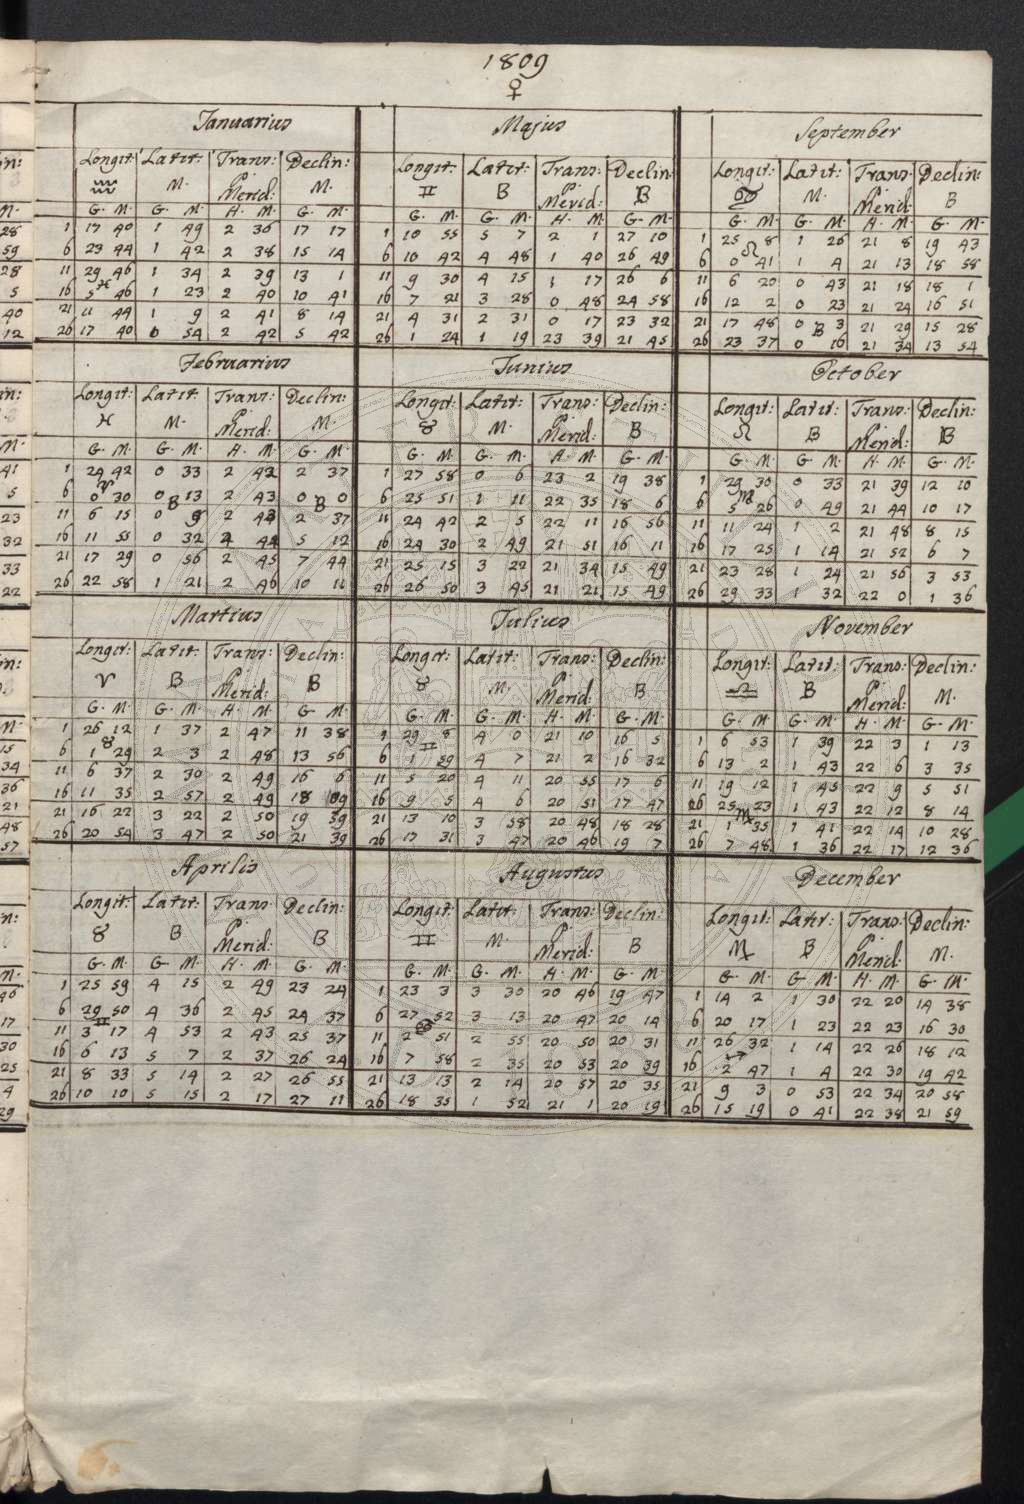 1809
♀
Januarius
Longit: Latit: Trans: Declin:
♒ M. P. Merid: M.
G. M. G. M. H. M. G. M.
1 17 40 1 49 2 36 17 17
6 23 44 1 42 2 38 15 14
11 29 46 1 34 2 39 13 1
♓
16 5 46 1 23 2 40 10 41
21 11 44 1 9 2 41 8 14
26 17 40 0 54 2 42 5 42
Februarius
Longit: Latit: Trans: Declin:
♓ M. P. Merid: M.
G. M. G. M. H. M. G. M.
1 24 42 0 33 2 42 2 37
♈
6 0 30 0 13 2 43 0 0
B B
11 6 15 0 9 2 43 2 37
16 11 55 0 32 2 44 5 12
21 17 29 0 56 2 45 7 44
26 22 58 1 21 2 46 10 11
Martius
Longit: Latit: Trans: Declin:
♈ B P. Merid: B
G. M. G. M. H. M. G. M.
1 26 12 1 37 2 47 11 38
♉
6 1 29 2 3 2 48 13 56
11 6 37 2 30 2 49 16 6
16 11 35 2 57 2 49 18 09
21 16 22 3 22 2 50 19 39
26 20 54 3 47 2 50 21 39
Aprilis
Longit: Latit: Trans Declin:
♉ B P. Merid: B
G. M. G. M. H. M. G. M.
1 25 59 4 15 2 49 23 24
6 29 50 4 36 2 45 24 37
♊
11 3 17 4 53 2 43 25 37
16 6 13 5 7 2 37 26 24
21 8 33 5 14 2 27 26 55
26 10 10 5 15 2 17 27 11
Majus
Longit: Latit: Trans: Declin:
♊ B P. Merid: B
G. M. G. M. H. M. G. M.
1 10 55 5 7 2 1 27 10
6 10 42 4 48 1 40 26 49
11 9 30 4 15 1 17 26 6
16 7 21 3 28 0 48 24 58
21 4 31 2 31 0 17 23 32
26 1 24 1 19 23 39 21 45
Junius
Longit: Latit: Trans: Declin:
♉ M. P. Merid: B
G. M. G. M. H. M. G. M.
1 27 58 0 6 23 2 19 38
6 25 51 1 11 22 35 18 6
11 24 42 2 5 22 11 16 56
16 24 30 2 49 21 51 16 11
21 25 15 3 22 21 34 15 49
26 26 50 3 45 21 21 15 49
Julius
Longit: Latit: Trans: Declin:
♉ M. P. Merid: B
G. M. G. M. H. M. G. M.
1 29 8 4 0 21 10 16 5
♊
6 1 59 4 7 21 2 16 32
11 5 20 4 11 20 55 17 6
16 9 5 4 6 20 51 17 47
21 13 10 3 58 20 48 18 28
26 17 31 3 47 20 46 19 7
Augustus
Longit: Latit: Trans: Declin:
♊ M. P. Merid: B
G. M. G. M. H. M. G. M.
1 23 3 3 30 20 46 19 47
6 27 52 3 13 20 47 20 14
♋
11 2 51 2 55 20 50 20 31
16 7 58 2 35 20 53 20 39
21 13 13 2 14 20 57 20 35
26 18 35 1 52 21 1 20 19
September
Longit: Latit: Trans: Declin:
♋ M. P. Merid: B
G. M. G. M. H. M. G. M.
1 25 8 1 26 21 8 19 43
♌
6 0 41 1 4 21 13 18 58
11 6 20 0 43 21 18 18 1
16 12 2 0 23 21 24 16 51
21 17 48 0 3 21 29 15 28
B
26 23 37 0 16 21 34 13 54
October
Longit: Latit: Trans: Declin:
♌ B P. Merid: B
G. M. G. M. H. M. G. M.
1 29 30 0 33 21 39 12 10
♍
6 5 26 0 49 21 44 10 17
11 11 24 1 2 21 48 8 15
16 17 25 1 14 21 52 6 7
21 23 28 1 24 21 56 3 53
26 29 33 1 32 22 0 1 36
November
Longit: Latit: Trans: Declin:
♎ B P. Merid: M.
G. M. G. M. H. M. G. M.
1 6 53 1 39 22 3 1 13
6 13 2 1 43 22 6 3 35
11 19 12 1 45 22 9 5 51
26 25 23 1 43 22 12 8 14
♏
21 1 35 1 41 22 14 10 28
26 7 48 1 36 22 17 12 36
December
Longit: Latit: Trans: Declin:
♏ B P. Merid: M.
G. M. G. M. H. M. G. M.
1 14 2 1 30 22 20 14 38
6 20 17 1 23 22 23 16 30
11 26 32 1 14 22 26 18 12
♐
16 2 47 1 4 22 30 19 42
21 9 3 0 53 22 34 20 58
26 15 19 0 41 22 38 21 59